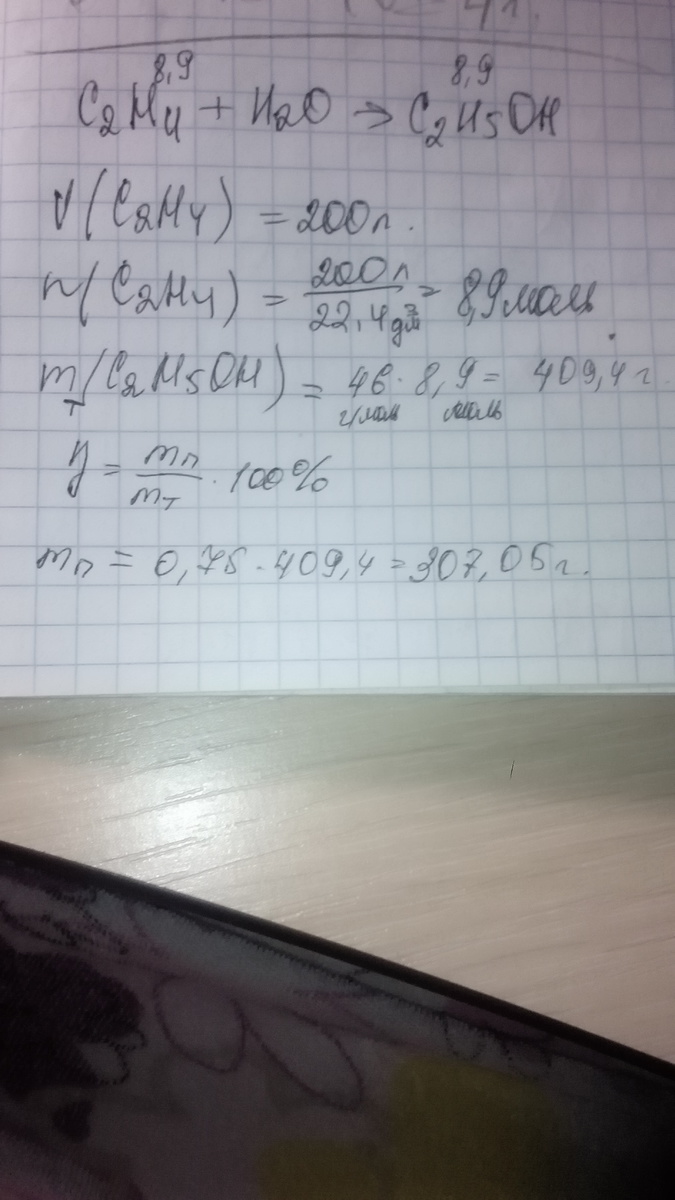 8,9 8,9
C2H4 + H2O → C2H5OH
V(C2H4) = 200л.
n(C2H4) = 200л / 22,4дм³ = 8,9моль
mт(C2H5OH) = 46 г/моль · 8,9 моль = 409,4 г
η = mп / mт · 100%
mп = 0,75 · 409,4 = 307,05 г.